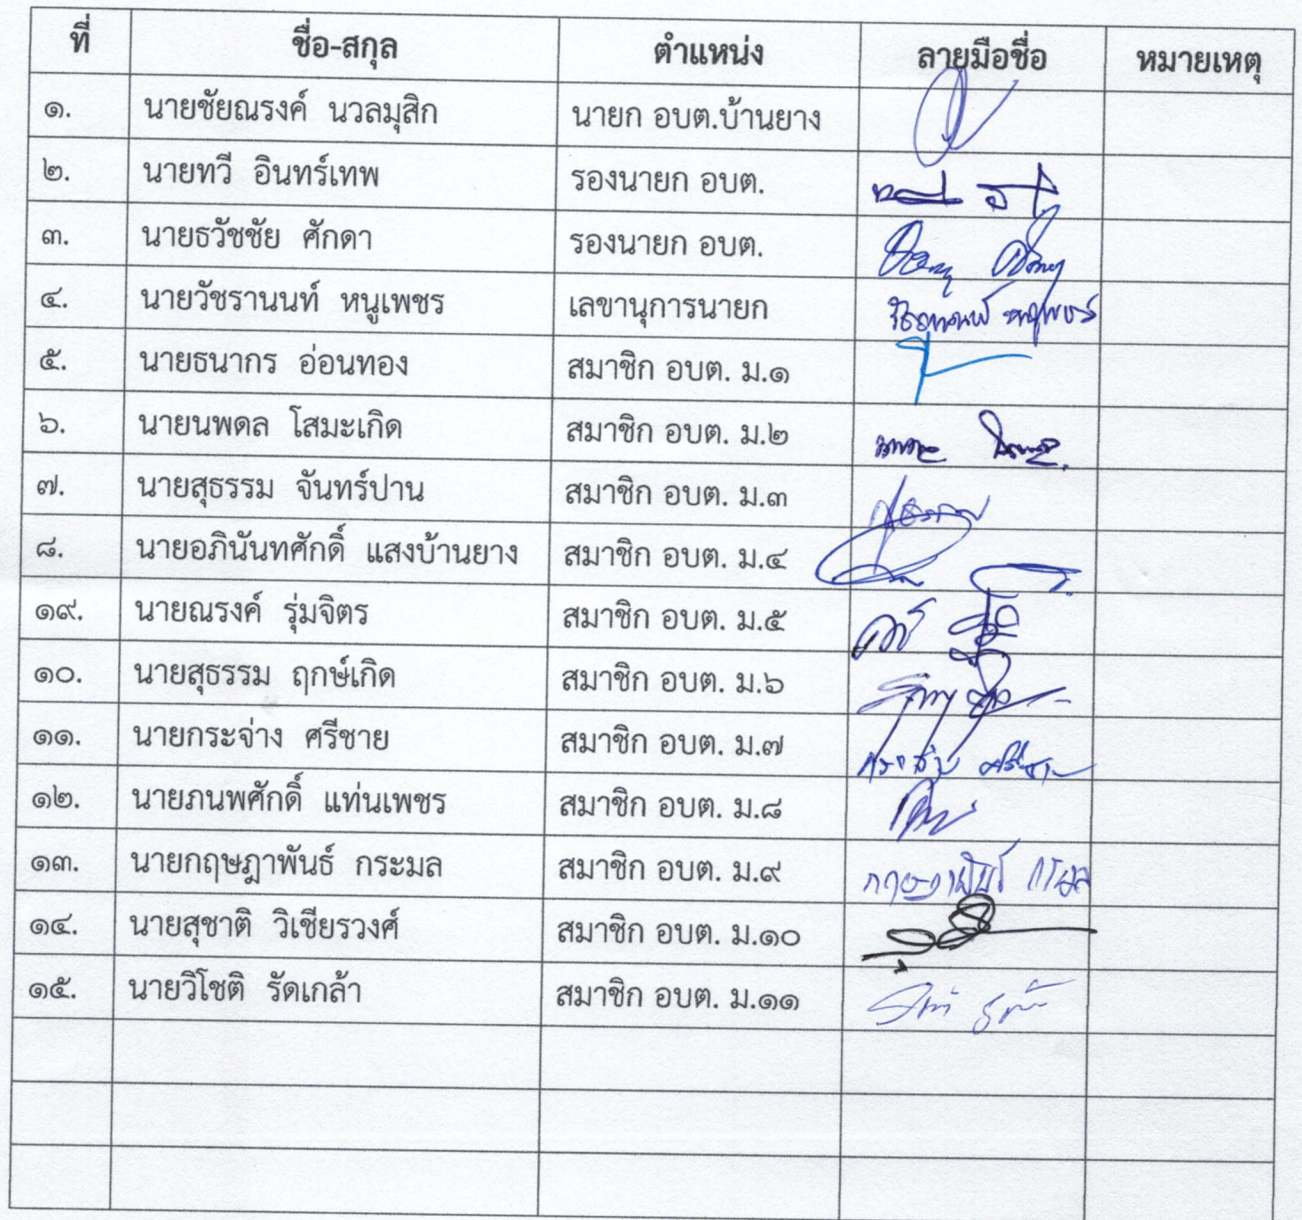 ที่ ชื่อ-สกุล ตำแหน่ง ลายมือชื่อ หมายเหตุ
๑. นายชัยณรงค์ นวลมุสิก นายก อบต.บ้านยาง
๒. นายทวี อินทร์เทพ รองนายก อบต.
๓. นายธวัชชัย ศักดา รองนายก อบต.
๔. นายวัชรานนท์ หนูเพชร เลขานุการนายก
๕. นายธนากร อ่อนทอง สมาชิก อบต. ม.๑
๖. นายนพดล โสมะเกิด สมาชิก อบต. ม.๒
๗. นายสุธรรม จันทร์ปาน สมาชิก อบต. ม.๓
๘. นายอภินันทศักดิ์ แสงบ้านยาง สมาชิก อบต. ม.๔
๑๙. นายณรงค์ รุ่มจิตร สมาชิก อบต. ม.๕
๑๐. นายสุธรรม ฤกษ์เกิด สมาชิก อบต. ม.๖
๑๑. นายกระจ่าง ศรีชาย สมาชิก อบต. ม.๗
๑๒. นายภนพศักดิ์ แท่นเพชร สมาชิก อบต. ม.๘
๑๓. นายกฤษฎาพันธ์ กระมล สมาชิก อบต. ม.๙
๑๔. นายสุชาติ วิเชียรวงศ์ สมาชิก อบต. ม.๑๐
๑๕. นายวิโชติ รัดเกล้า สมาชิก อบต. ม.๑๑